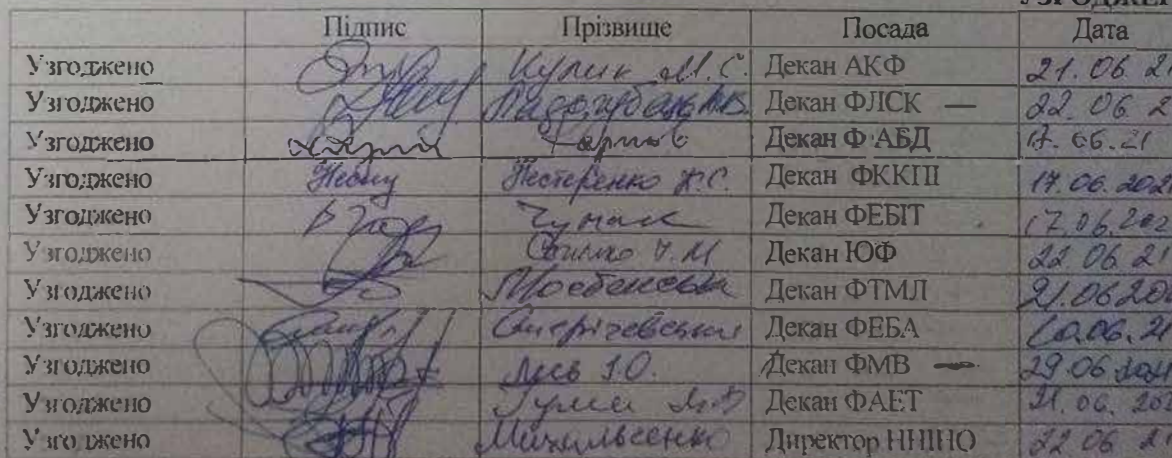 УЗГОДЖЕН
Підпис Прізвище Посада Дата
Узгоджено Кулик М.С. Декан АКФ 21.06.2
Узгоджено Декан ФЛСК — 22.06.2
Узгоджено Декан ФАБД 17.06.21
Узгоджено Нестеренко К.С. Декан ФККПІ 17.06.202
Узгоджено Чумак Декан ФЕБІТ 17.06.202
Узгоджено Декан ЮФ 22.06.21
Узгоджено Декан ФТМЛ 21.06.20
Узгоджено Декан ФЕБА
Узгоджено Декан ФМВ — 29.06.2021
Узгоджено Декан ФАЕТ 21.06.202
Узгоджено Михальченко Директор ННІНО 22.06.2